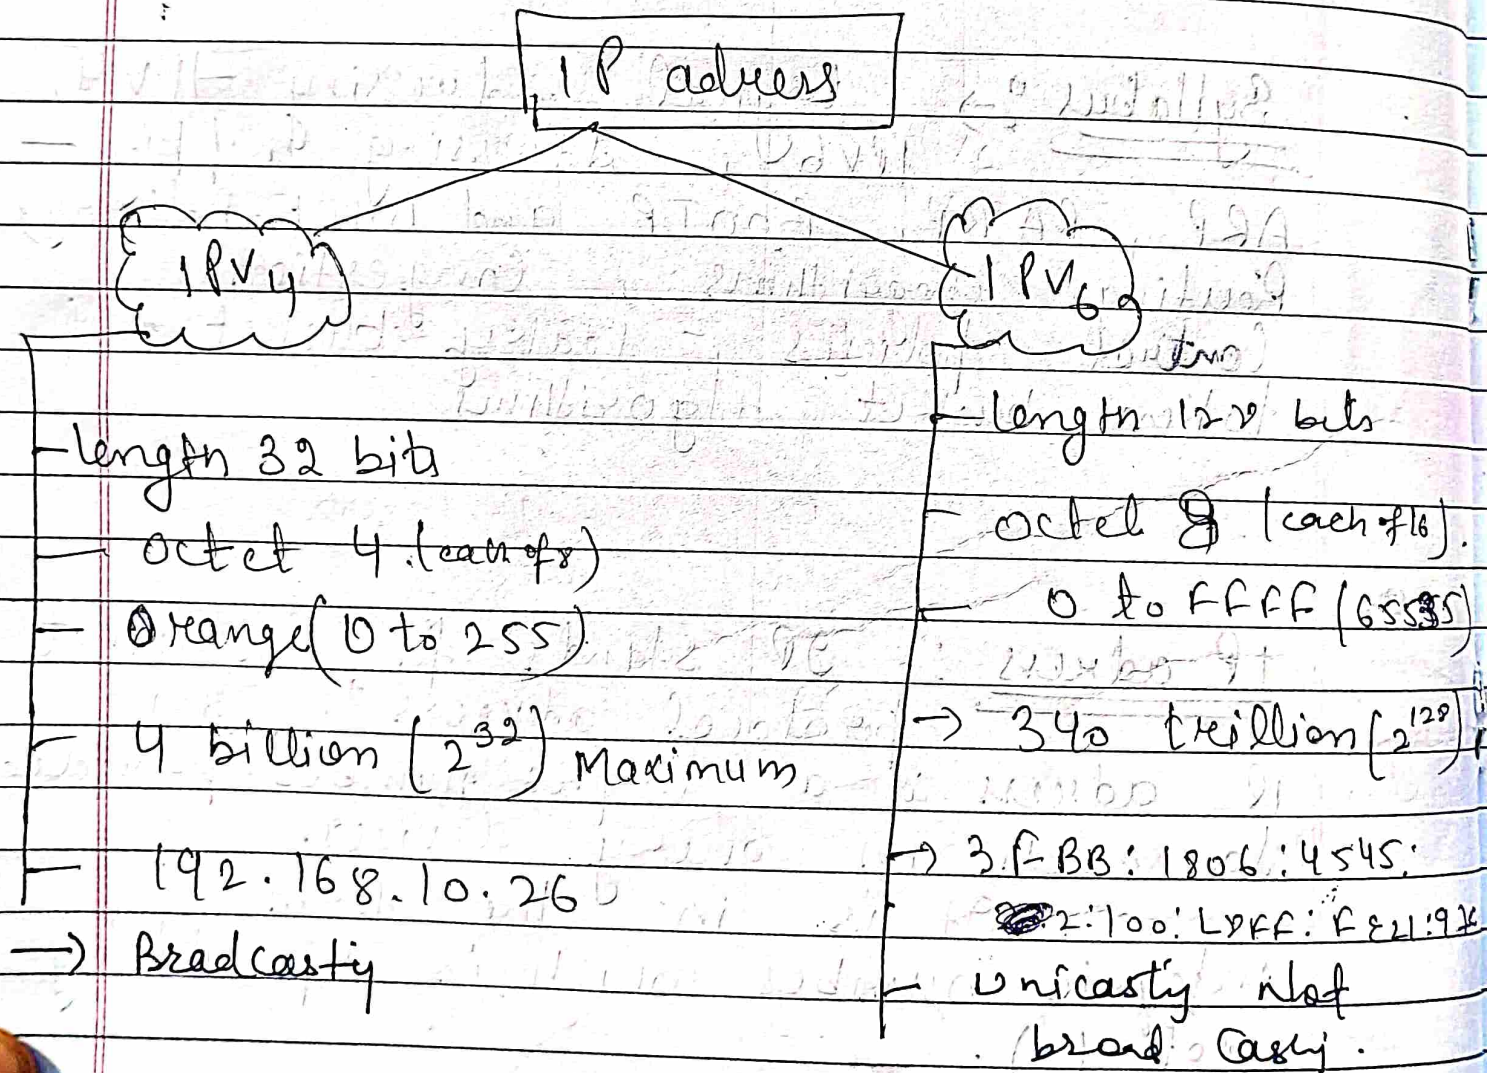 IP adress
IPV4
length 32 bits
octet 4 (each of 8)
range (0 to 255)
4 billion (2^32) Maximum
192.168.10.26
→ Bradcasty
IPV6
length 128 bits
octet 8 (each of 16).
0 to FFFF (65535)
→ 340 trillion (2^128)
→ 3FBB: 1806: 4545:
2:100:
unicasty Not
broad